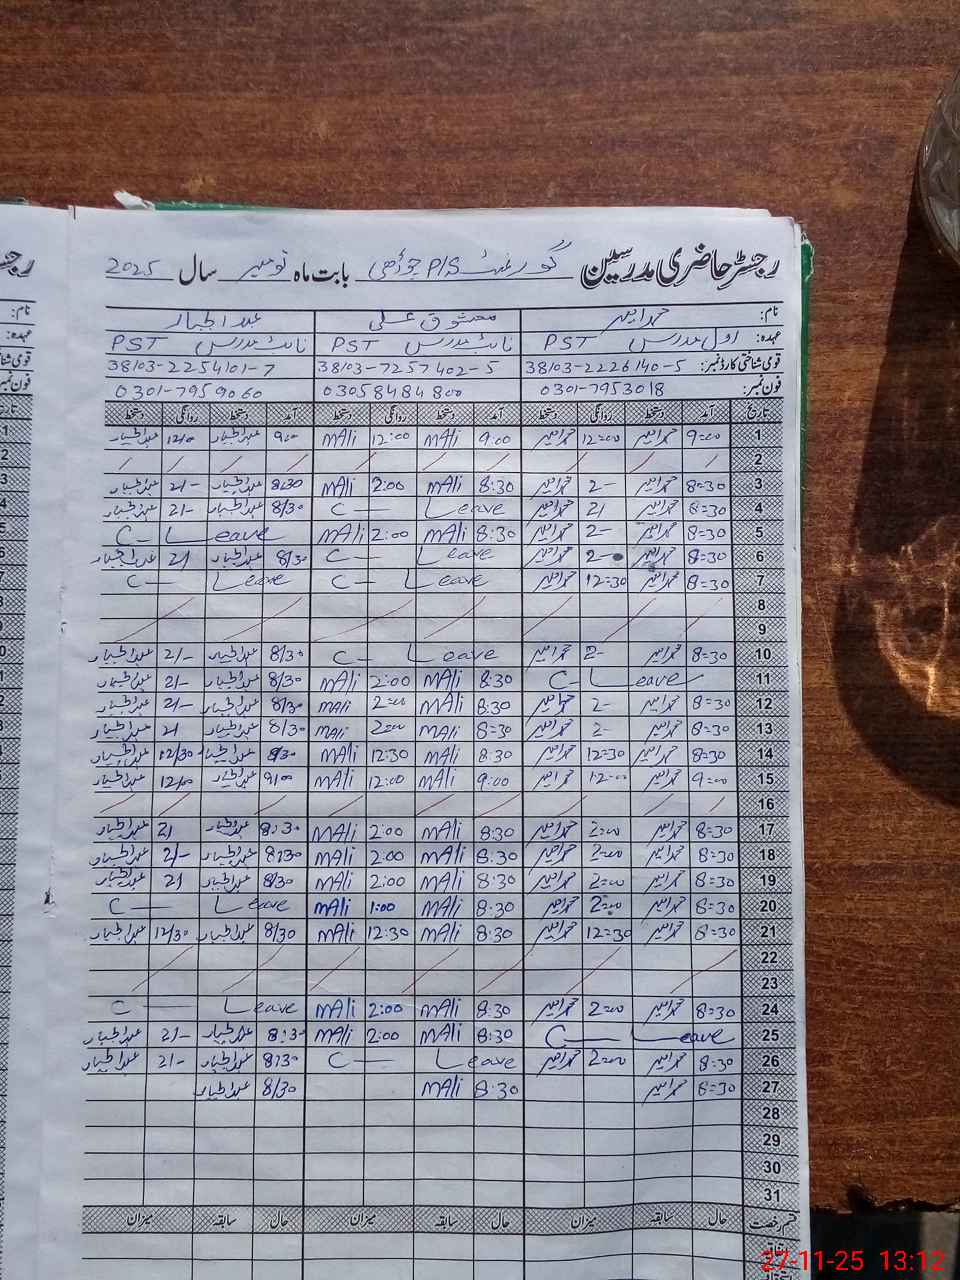 رجسٹر حاضری مدرسین گورنمنٹ P/S جوڑھی بابت ماہ نومبر سال 2025
نام: محمد امیر معشوق علی عبدالجبار
عہدہ: اول مدرس PST نائب مدرس PST نائب مدرس PST
قومی شناختی کارڈ نمبر: 38103-2226140-5 38103-7257402-5 38103-2254101-7
فون نمبر: 0301-7953018 03058484800 0301-7959060
تاریخ آمد دستخط روانگی دستخط آمد دستخط روانگی دستخط آمد دستخط روانگی دستخط
1 9=00 محمد امیر 12=00 محمد امیر 9:00 MAli 12:00 MAli 9:00 عبدالجبار 12/00 عبدالجبار
2
3 8=30 محمد امیر 2- محمد امیر 8:30 MAli 2:00 MAli 8:30 عبدالجبار 2/- عبدالجبار
4 8=30 محمد امیر 2/ محمد امیر C- Leave 8/30 عبدالجبار 2/- عبدالجبار
5 8=30 محمد امیر 2- محمد امیر 8:30 MAli 2:00 MAli C- Leave
6 8=30 محمد امیر 2- محمد امیر C- Leave 8/30 عبدالجبار 2/ عبدالجبار
7 8=30 محمد امیر 12=30 محمد امیر C- Leave C- Leave
8
9
10 8=30 محمد امیر 2- محمد امیر C- Leave 8/30 عبدالجبار 2/- عبدالجبار
11 C- Leave 8:30 MAli 2:00 MAli 8/30 عبدالجبار 2/- عبدالجبار
12 8=30 محمد امیر 2- محمد امیر 8:30 MAli 2=00 MAli 8/30 عبدالجبار 2/- عبدالجبار
13 8=30 محمد امیر 2- محمد امیر 8=30 MAli 2=00 MAli 8/30 عبدالجبار 2/ عبدالجبار
14 8=30 محمد امیر 12=30 محمد امیر 8:30 MAli 12:30 MAli 8/30 عبدالجبار 12/30 عبدالجبار
15 9=00 محمد امیر 12=00 محمد امیر 9:00 MAli 12:00 MAli 9/00 عبدالجبار 12/00 عبدالجبار
16
17 8=30 محمد امیر 2=00 محمد امیر 8:30 MAli 2:00 MAli 8:30 عبدالجبار 2/ عبدالجبار
18 8=30 محمد امیر 2=00 محمد امیر 8:30 MAli 2:00 MAli 8:30 عبدالجبار 2/- عبدالجبار
19 8=30 محمد امیر 2=00 محمد امیر 8:30 MAli 2:00 MAli 8/30 عبدالجبار 2/ عبدالجبار
20 8=30 محمد امیر 2=00 محمد امیر 8:30 MAli 1:00 MAli C- Leave
21 8=30 محمد امیر 12=30 محمد امیر 8:30 MAli 12:30 MAli 8/30 عبدالجبار 12/30 عبدالجبار
22
23
24 8=30 محمد امیر 2=00 محمد امیر 8:30 MAli 2:00 MAli C- Leave
25 C- Leave 8:30 MAli 2:00 MAli 8:30 عبدالجبار 2/- عبدالجبار
26 8=30 محمد امیر 2=00 محمد امیر C- Leave 8:30 عبدالجبار 2/- عبدالجبار
27 8=30 محمد امیر 8:30 MAli 8/30 عبدالجبار
28
29
30
31
قسم رخصت حال سابقہ میزان حال سابقہ میزان حال سابقہ میزان
27-11-25 13:12